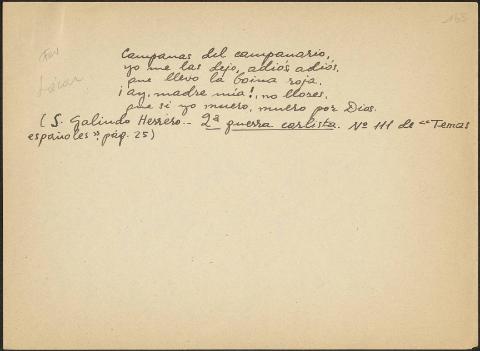 165
Campanas del campanario,
yo me las dejo, adiós, adiós,
que llevo la boina roja,
¡ay, madre mía!, no llores,
que si yo muero, muero por Dios.
(S. Galindo Herrero.- 2ª guerra carlista. Nº 111 de "Temas
españoles", pág. 25)